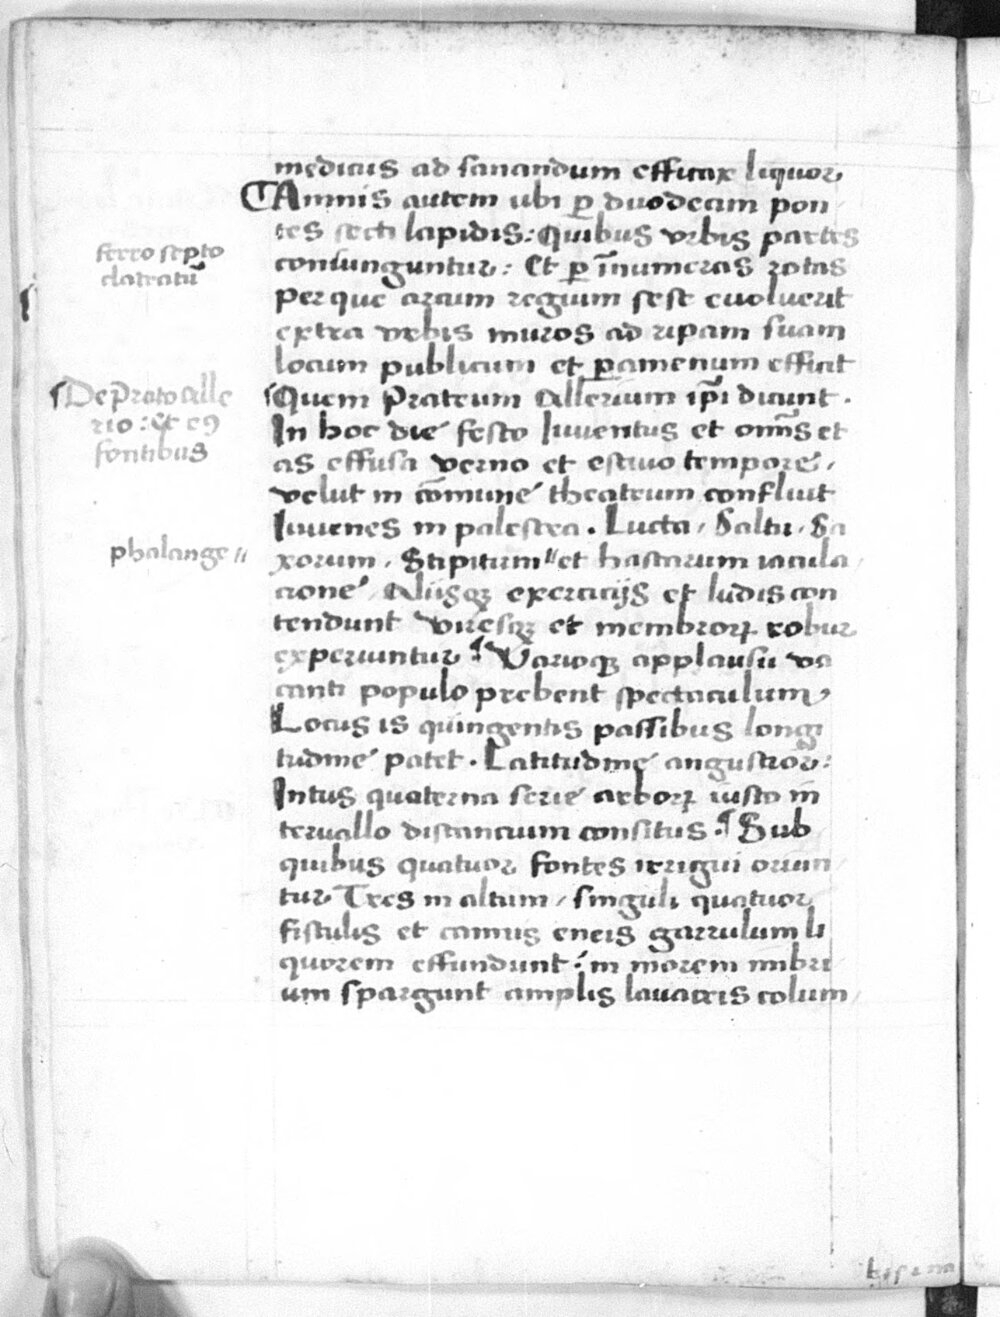 medicus ad sanandum efficax liquor,
Amnis autem ubi ꝑ duodecim pon
tes secti lapidis: Quibus vrbis partes
coniunguntur: Et ꝑ īnumeras rotas
Per que arcum regium sese euoluerit
extra vrbis muros ad ripam suam
locum publicum et ꝑamenum efficit
Quem Prateum Allerium ip̄i dicunt.
In hoc die festo Iuuentus et om̄s et
as effusa verno et estiuo tempore,
velut in cōmune theatrum confluit
Iuuenes in palestra. Lucta, Saltu, Sa
xorum, Stipitum" et hastarum iacula
cione, Aliisqꝫ exercicijs et ludis con
tendunt viresqꝫ et membroꝝ robur
experiuntur Varioqꝫ applausu va
canti populo prebent spectaculum,
Locus is quingentis passibus longi
tudine patet. Latitudine angustior:
Intus quaterna serie arboꝝ iusto in
teruallo distancium consitus. Sub
quibus quatuor fontes irrigui oriun
tur Tres in altum, singuli quatuor
fistulis et camus eneis garrulum li
quorem effundunt: in morem imbri
um spargunt amplis lauacris colum
ferro septo
clatratū
De Prato Alle
rio: Et eꝯ
fontibus
phalange"